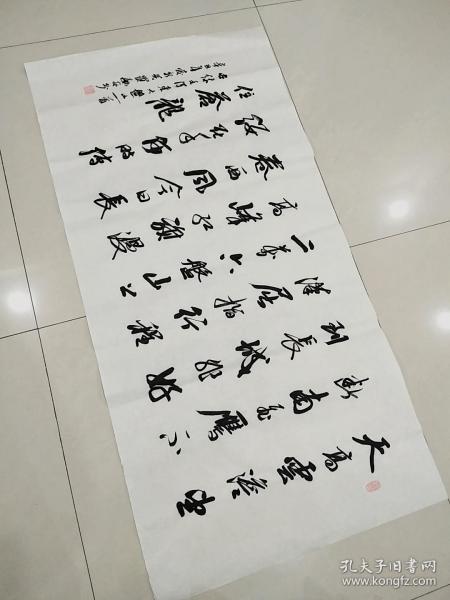 天高雲淡望
断南飞雁不
到長城非好
漢屈指行程
二萬六盤山上
高峰紅旗漫
卷西風今日長
纓在手何時縛
住蒼龍
孔夫子旧书网
www.kongfz.com